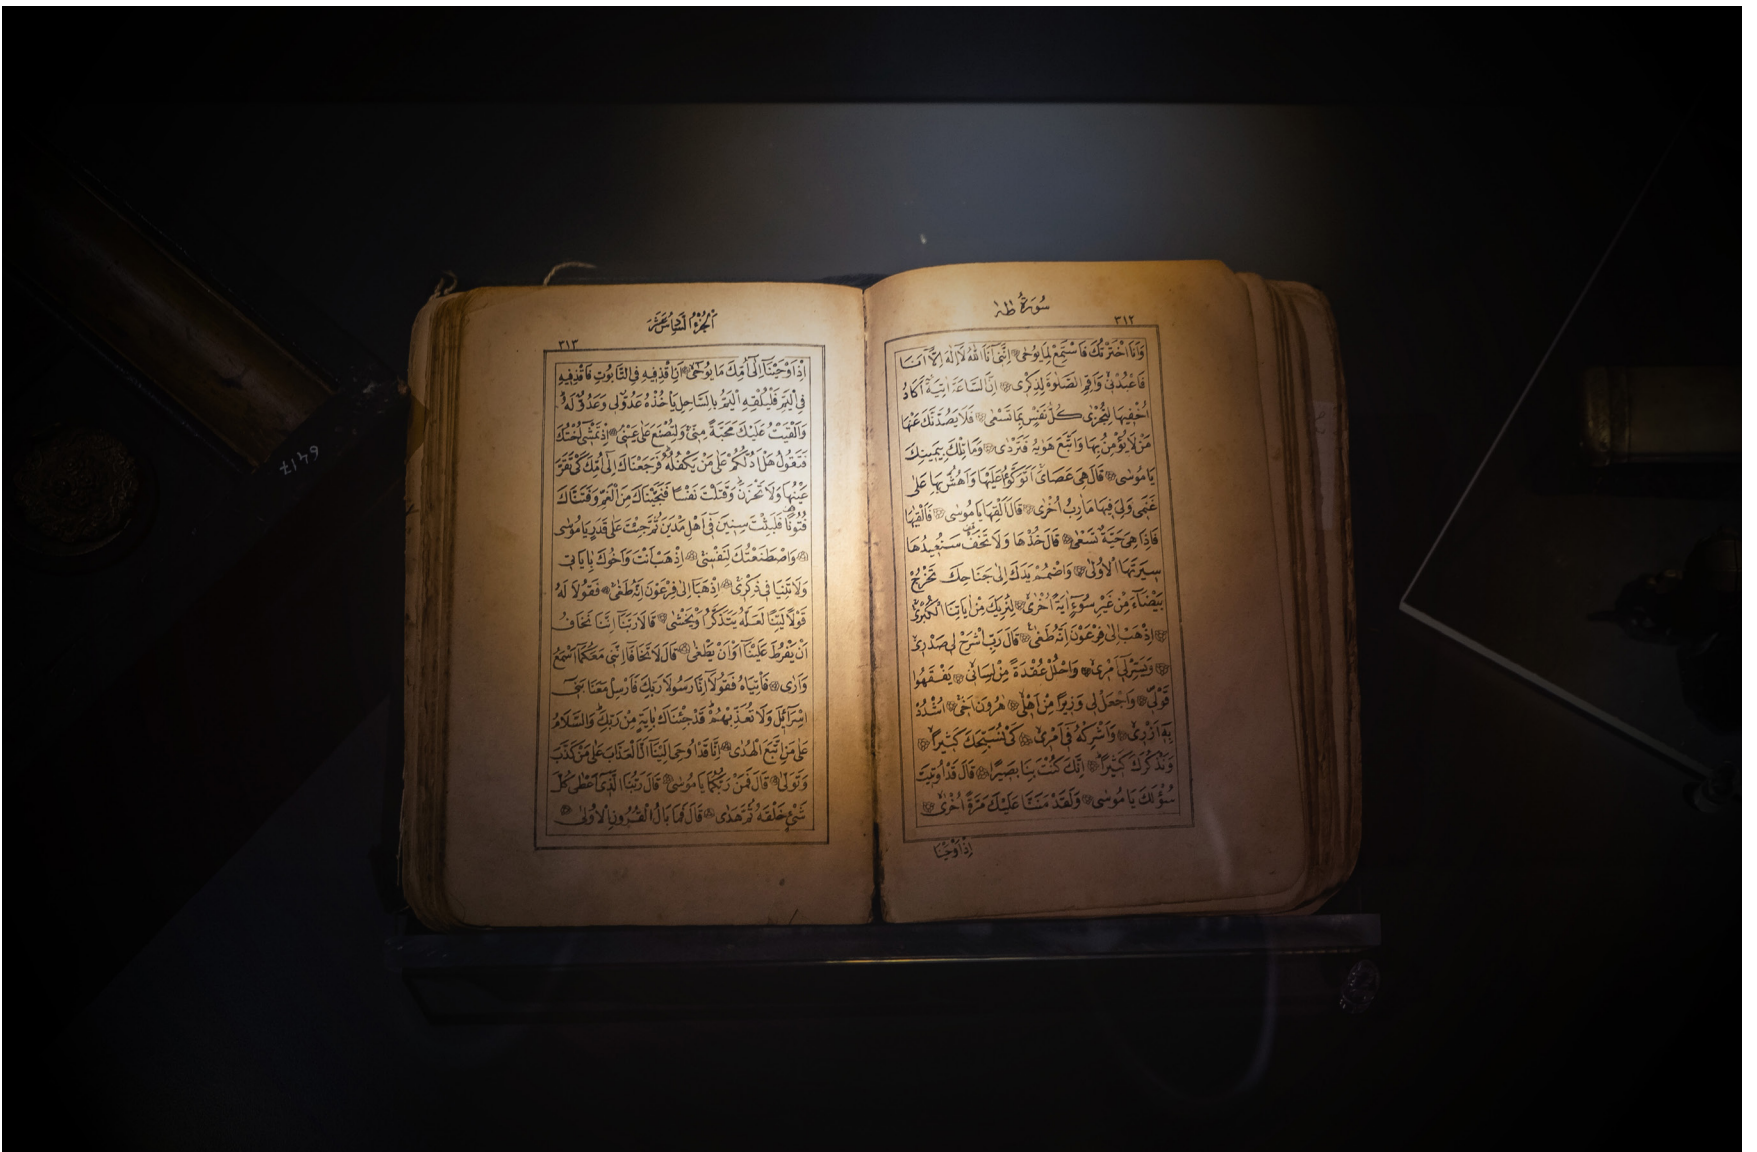 سُورَةُ طٰهٰ
٣١٢
وَاَنَا اخْتَرْتُكَ فَاسْتَمِعْ لِمَا يُوحٰى اِنَّنٓى اَنَا اللّٰهُ لَٓا اِلٰهَ اِلَّٓا اَنَا
فَاعْبُدْنٖى وَاَقِمِ الصَّلٰوةَ لِذِكْرٖى اِنَّ السَّاعَةَ اٰتِيَةٌ اَكَادُ
اُخْفٖيهَا لِتُجْزٰى كُلُّ نَفْسٍ بِمَا تَسْعٰى فَلَا يَصُدَّنَّكَ عَنْهَا
مَنْ لَا يُؤْمِنُ بِهَا وَاتَّبَعَ هَوٰيهُ فَتَرْدٰى وَمَا تِلْكَ بِيَمٖينِكَ
يَا مُوسٰى قَالَ هِىَ عَصَاىَ اَتَوَكَّؤُا عَلَيْهَا وَاَهُشُّ بِهَا عَلٰى
غَنَمٖى وَلِىَ فٖيهَا مَاٰرِبُ اُخْرٰى قَالَ اَلْقِهَا يَا مُوسٰى فَاَلْقٰيهَا
فَاِذَا هِىَ حَيَّةٌ تَسْعٰى قَالَ خُذْهَا وَلَا تَخَفْ سَنُعٖيدُهَا
سٖيرَتَهَا الْاُولٰى وَاضْمُمْ يَدَكَ اِلٰى جَنَاحِكَ تَخْرُجْ
بَيْضَٓاءَ مِنْ غَيْرِ سُوءٍ اٰيَةً اُخْرٰى لِنُرِيَكَ مِنْ اٰيَاتِنَا الْكُبْرٰى
اِذْهَبْ اِلٰى فِرْعَوْنَ اِنَّهُ طَغٰى قَالَ رَبِّ اشْرَحْ لٖى صَدْرٖى
وَيَسِّرْ لٖٓى اَمْرٖى وَاحْلُلْ عُقْدَةً مِنْ لِسَانٖى يَفْقَهُوا
قَوْلٖى وَاجْعَلْ لٖى وَزٖيرًا مِنْ اَهْلٖى هٰرُونَ اَخٖى اُشْدُدْ
بِهٖٓ اَزْرٖى وَاَشْرِكْهُ فٖٓى اَمْرٖى كَىْ نُسَبِّحَكَ كَثٖيرًا
وَنَذْكُرَكَ كَثٖيرًا اِنَّكَ كُنْتَ بِنَا بَصٖيرًا قَالَ قَدْ اُوتٖيتَ
سُؤْلَكَ يَا مُوسٰى وَلَقَدْ مَنَنَّا عَلَيْكَ مَرَّةً اُخْرٰى
اِذْ اَوْحَيْنَا
اَلْجُزْءُ السَّادِسُ عَشَرَ
٣١٣
اِذْ اَوْحَيْنَٓا اِلٰٓى اُمِّكَ مَا يُوحٰى اَنِ اقْذِفٖيهِ فِى التَّابُوتِ فَاقْذِفٖيهِ
فِى الْيَمِّ فَلْيُلْقِهِ الْيَمُّ بِالسَّاحِلِ يَأْخُذْهُ عَدُوٌّ لٖى وَعَدُوٌّ لَهُ
وَاَلْقَيْتُ عَلَيْكَ مَحَبَّةً مِنّٖى وَلِتُصْنَعَ عَلٰى عَيْنٖى اِذْ تَمْشٖٓى اُخْتُكَ
فَتَقُولُ هَلْ اَدُلُّكُمْ عَلٰى مَنْ يَكْفُلُهُ فَرَجَعْنَاكَ اِلٰٓى اُمِّكَ كَىْ تَقَرَّ
عَيْنُهَا وَلَا تَحْزَنَ وَقَتَلْتَ نَفْسًا فَنَجَّيْنَاكَ مِنَ الْغَمِّ وَفَتَنَّاكَ
فُتُونًا فَلَبِثْتَ سِنٖينَ فٖٓى اَهْلِ مَدْيَنَ ثُمَّ جِئْتَ عَلٰى قَدَرٍ يَا مُوسٰى
وَاصْطَنَعْتُكَ لِنَفْسٖى اِذْهَبْ اَنْتَ وَاَخُوكَ بِاٰيَاتٖى
وَلَا تَنِيَا فٖى ذِكْرٖى اِذْهَبَٓا اِلٰى فِرْعَوْنَ اِنَّهُ طَغٰى فَقُولَا لَهُ
قَوْلًا لَيِّنًا لَعَلَّهُ يَتَذَكَّرُ اَوْ يَخْشٰى قَالَا رَبَّنَٓا اِنَّنَا نَخَافُ
اَنْ يَفْرُطَ عَلَيْنَٓا اَوْ اَنْ يَطْغٰى قَالَ لَا تَخَافَٓا اِنَّنٖى مَعَكُمَٓا اَسْمَعُ
وَاَرٰى فَاْتِيَاهُ فَقُولَٓا اِنَّا رَسُولَا رَبِّكَ فَاَرْسِلْ مَعَنَا بَنٖٓى
اِسْرَٓائٖلَ وَلَا تُعَذِّبْهُمْ قَدْ جِئْنَاكَ بِاٰيَةٍ مِنْ رَبِّكَ وَالسَّلَامُ
عَلٰى مَنِ اتَّبَعَ الْهُدٰى اِنَّا قَدْ اُوحِىَ اِلَيْنَٓا اَنَّ الْعَذَابَ عَلٰى مَنْ كَذَّبَ
وَتَوَلّٰى قَالَ فَمَنْ رَبُّكُمَا يَا مُوسٰى قَالَ رَبُّنَا الَّذٖٓى اَعْطٰى كُلَّ
شَىْءٍ خَلْقَهُ ثُمَّ هَدٰى قَالَ فَمَا بَالُ الْقُرُونِ الْاُولٰى
6417